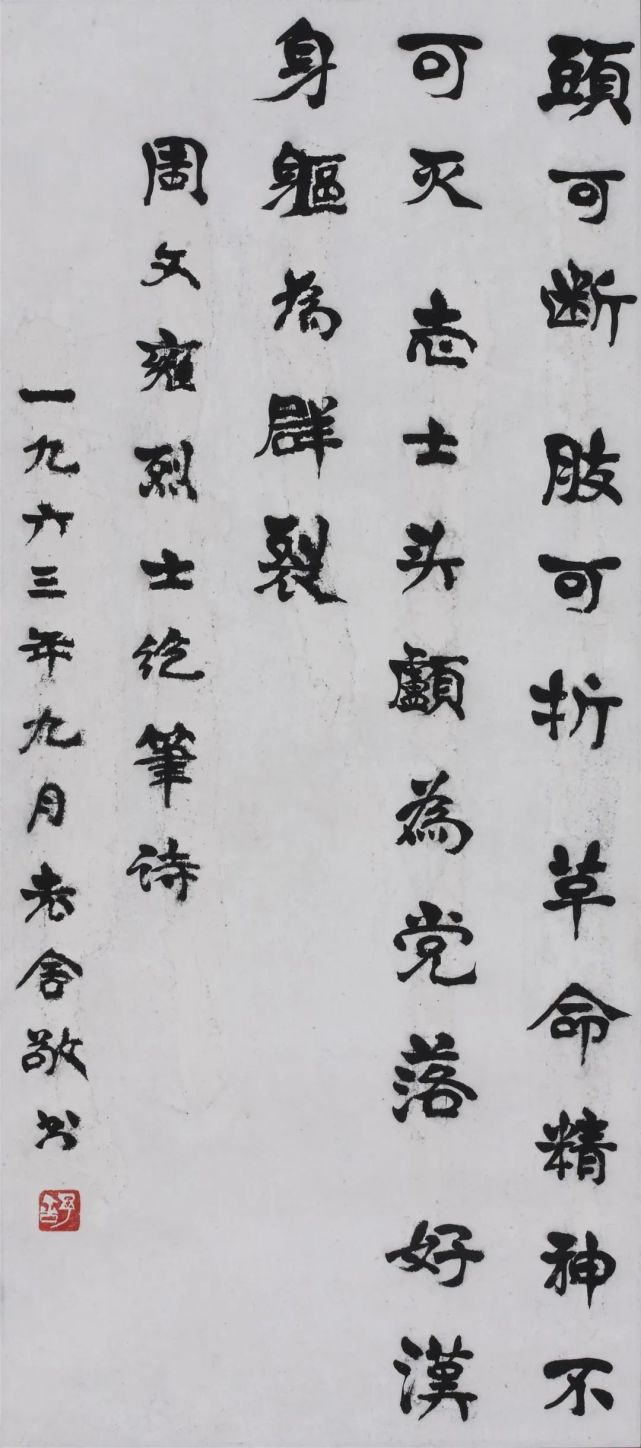 頭可断 肢可折 草命精神不
可灭 志士头顱為党落 好漢
身軀為群裂
周文雍烈士绝筆诗
一九六三年九月老舍敬书
舒舍